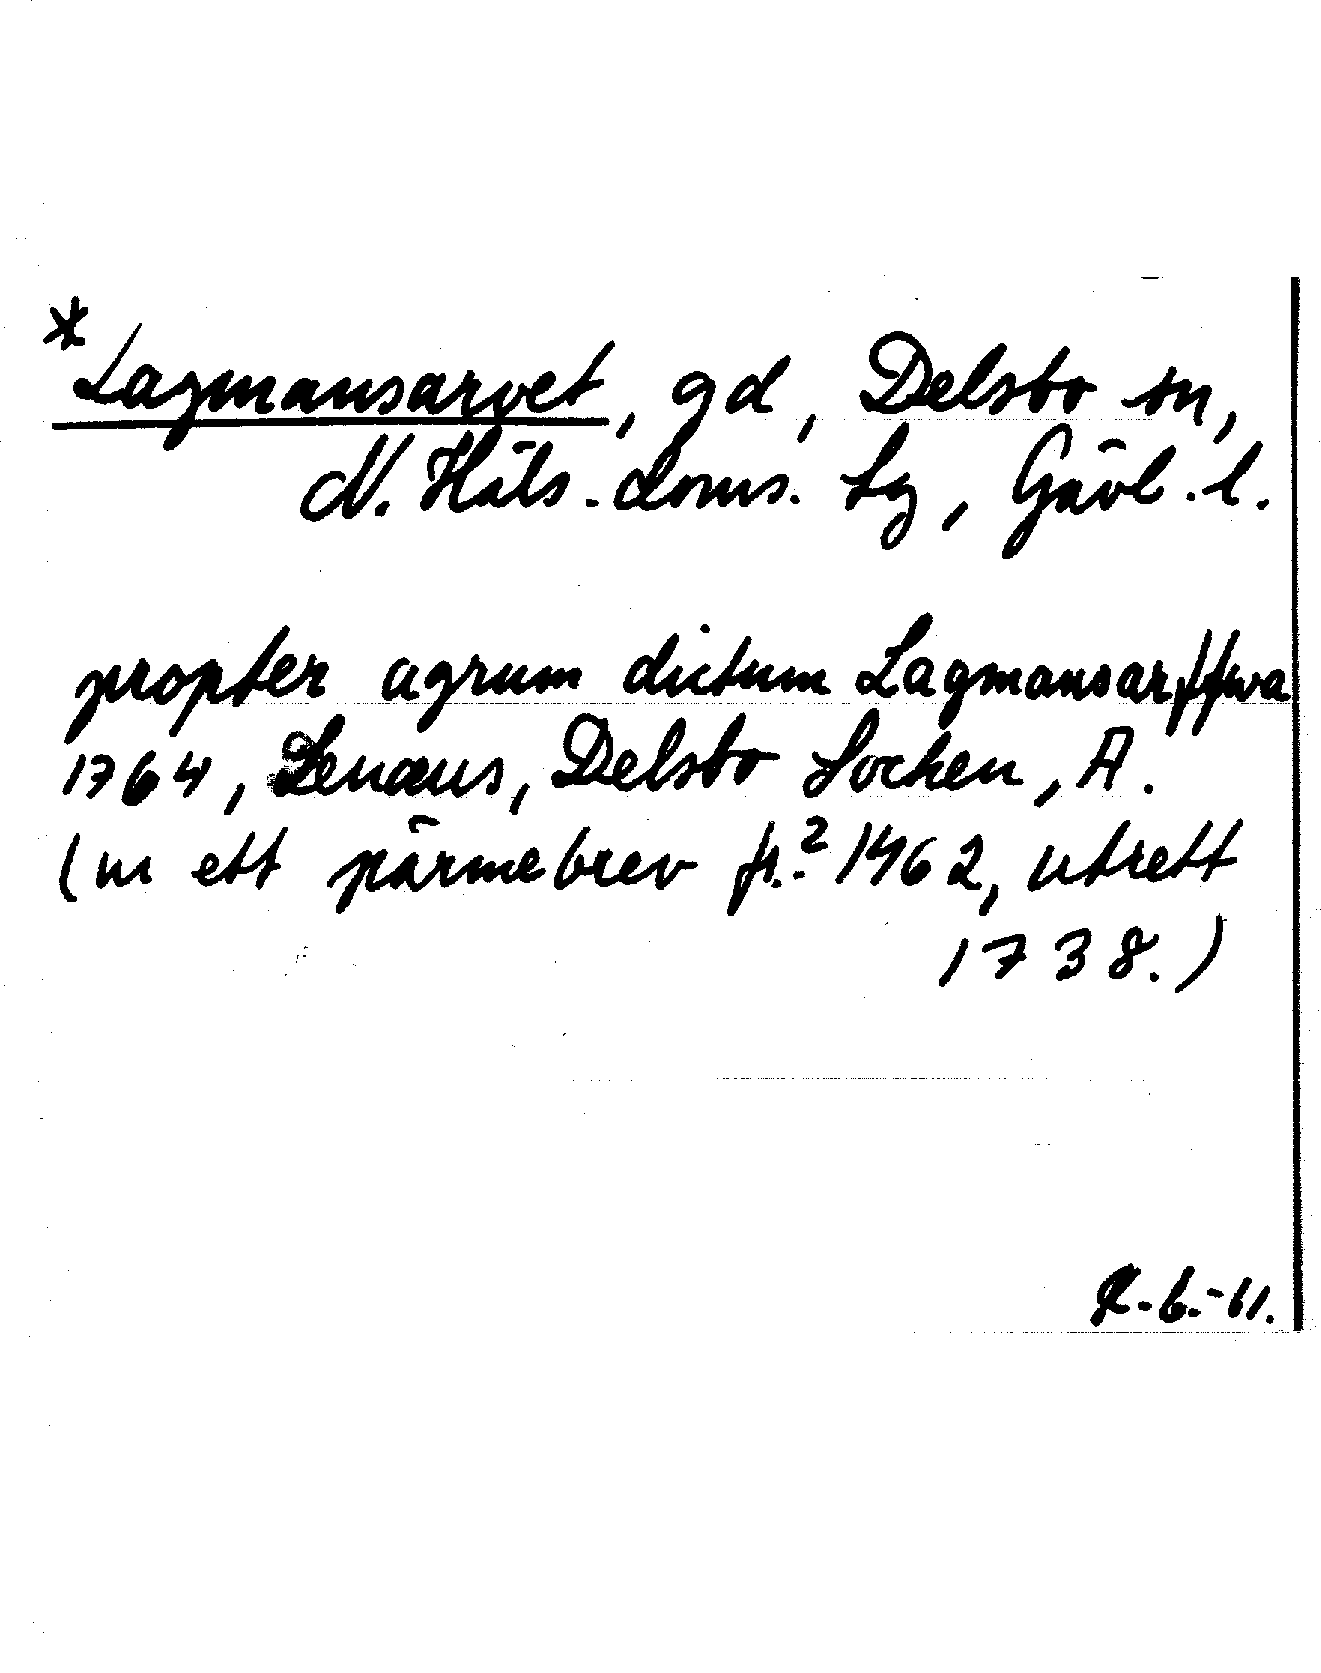 *Lagmansarvet, gd, Delsbo sn,
N. Häls. doms. lg, Gävl. l.
propter agrum dictum Lagmansarffwa
1764, Lenæus, Delsbo Sochen, A.
(ur ett pärmebrev fr.? 1462, utrett
1738.)
R-b.-61.